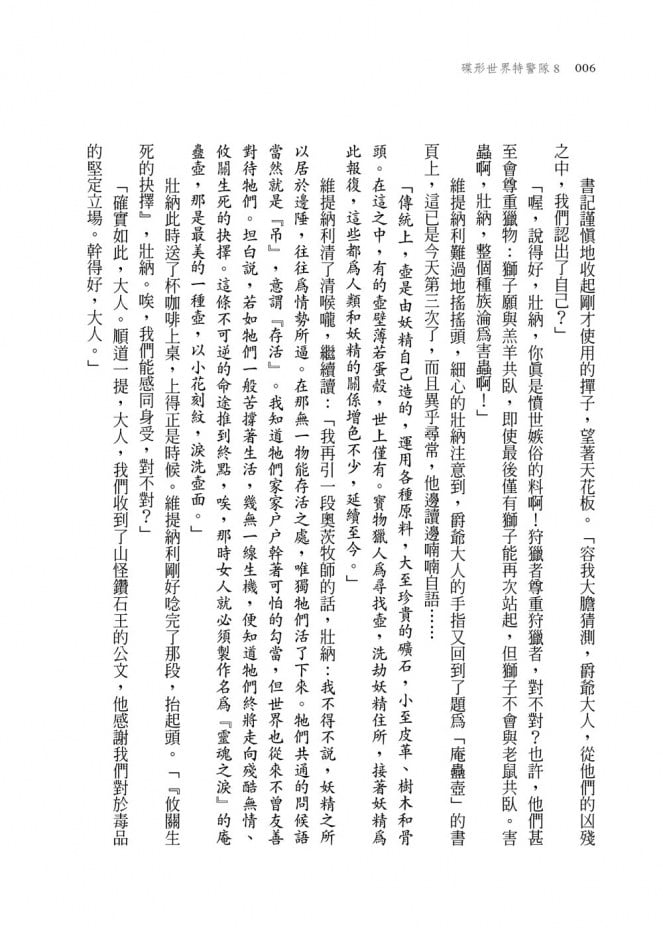 碟形世界特警隊8　006
書記謹慎地收起剛才使用的撣子，望著天花板。「容我大膽猜測，爵爺大人，從他們的凶殘
之中，我們認出了自己？」
「喔，說得好，壯納，你真是憤世嫉俗的料啊！狩獵者尊重狩獵者，對不對？也許，他們甚
至會尊重獵物：獅子願與羔羊共臥，即使最後僅有獅子能再次站起，但獅子不會與老鼠共臥。害
蟲啊，壯納，整個種族淪為害蟲啊！」
維提納利難過地搖搖頭，細心的壯納注意到，爵爺大人的手指又回到了題為「庵蠱壺」的書
頁上，這已是今天第三次了，而且異乎尋常，他邊讀邊喃喃自語……
「傳統上，壺是由妖精自己造的，運用各種原料，大至珍貴的礦石，小至皮革、樹木和骨
頭。在這之中，有的壺壁薄若蛋殼，世上僅有。寶物獵人為尋找壺，洗劫妖精住所，接著妖精為
此報復，這些都為人類和妖精的關係增色不少，延續至今。」
維提納利清了清喉嚨，繼續讀：「我再引一段奧茨牧師的話，壯納：我不得不說，妖精之所
以居於邊陲，往往為情勢所逼。在那無一物能存活之處，唯獨牠們活了下來。牠們共通的問候語
當然就是『吊』，意謂『存活』。我知道牠們家家戶戶幹著可怕的勾當，但世界也從來不曾友善
對待牠們。坦白說，若如牠們一般苦撐著生活，幾無一線生機，便知道牠們終將走向殘酷無情、
攸關生死的抉擇。這條不可逆的命途推到終點，唉，那時女人就必須製作名為『靈魂之淚』的庵
蠱壺，那是最美的一種壺，以小花刻紋，淚洗壺面。」
壯納此時送了杯咖啡上桌，上得正是時候。維提納利剛好唸完了那段，抬起頭。「『攸關生
死的抉擇』，壯納。唉，我們能感同身受，對不對？」
「確實如此，大人。順道一提，大人，我們收到了山怪鑽石王的公文，他感謝我們對於毒品
的堅定立場。幹得好，大人。」